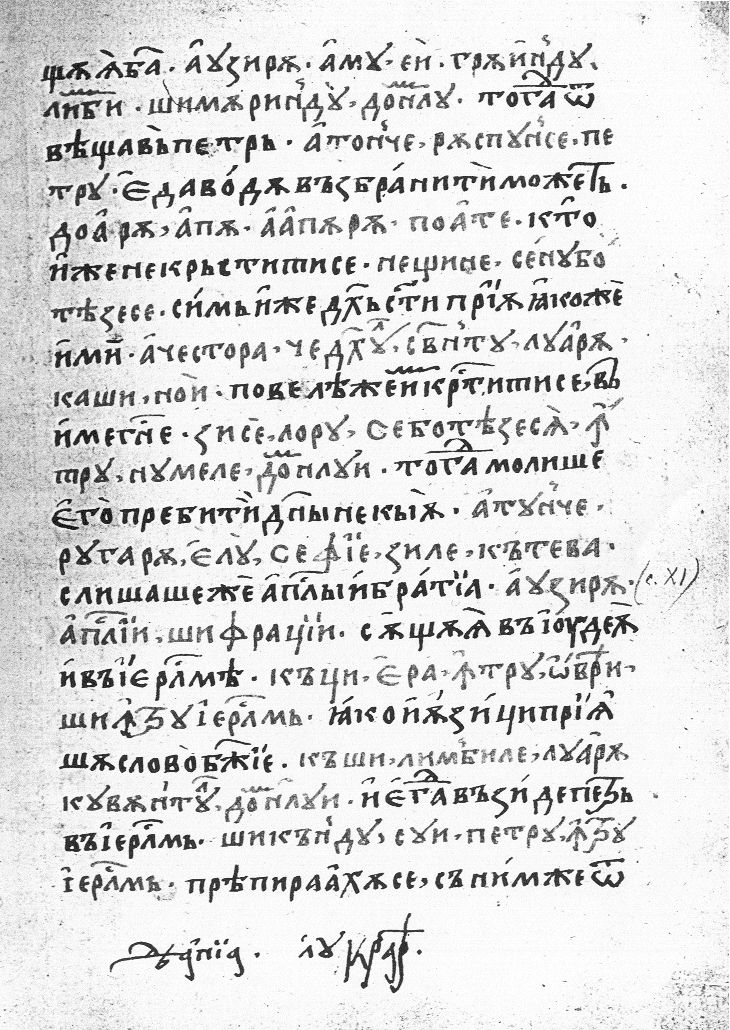 щѫѧ҆ба҄ . а҆узирѫ . а҆му . еи҆ . грѫи҆нду ,
либи . шимѫриндꙋ , домнлꙋ . тога ѿ
вѣщавь петрь . а҆тонче , рѫспꙋнсе , пе
трꙋ . є҆да во́дѫ възбра́нити може҄ть .
доа҆рѫ , а҆пѫ . а҆а҆пѫрѫ . поате . кто
и҆же не крьститисе . нещине , се́нꙋбо
тѣзесе . си́мь и҆же дх҃ь ст҃и прїѫ ꙗ҆коже
и҆ми . а҆честора , че дх҃ꙋ , свнтꙋ , лꙋа҆рѫ .
каши , нои . повелѣже и҆ крⷭ҇титисе , въ
и҆ме гн҃е . зисе , лорꙋ , се ботѣзесѫ , ꙟ
трꙋ , нꙋмеле , домнлꙋи . тога молише
є҆го пребити дн҃ы некыѫ . а҆тꙋнче ,
рꙋгарѫ , є҆лꙋ , се фїе , зиле , кътева .
слишаше же а҆пⷭ҇лы и҆ бра́тїа . а҆узирѫ . (c. XI)
а҆пⷭ҇лїи , ши фрацїи . сѫщѫѧ въ і҆ꙋдеѫ
и҆ въ і҆єрл҃мѣ . къци , є҆ра , ꙟтрꙋ , ѡ҆врⷺи ,
ши ꙟтрꙋ і҆єрл҃мь . ꙗ҆ко и҆ ѧ҆зи́ци прїѧ
шѫ слово бж҃їе . къши , лимбиле , лꙋарѫ
кꙋвѫнтꙋ , домнлꙋи . и҆ є҆га възи́де петрь
въ і҆єрл҃мь . ши кѫндꙋ , сꙋи , петрꙋ , ꙟтрꙋ
і҆єрл҃мь . прѣпираа҆хѫсе , съ нимже ѿ